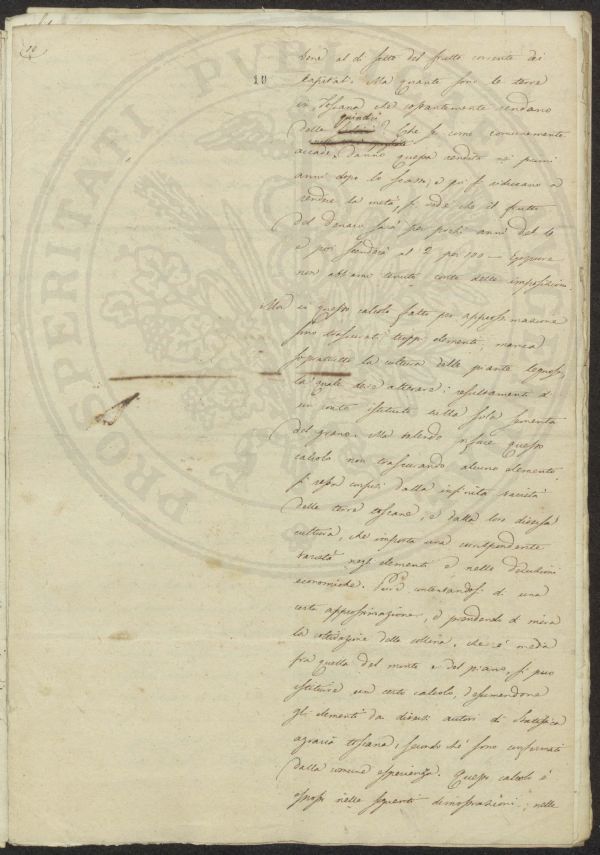 10
10
bene al di sotto del frutto corrente dei
capitali. Ma quante sono le terre
in Toscana che costantemente rendano
quindici
delle ? Che se come comunemente
accade, danno questa rendita nei primi
anni dopo lo scasso, e qui si riducano a
rendere la metà, si vede che il frutto
del denaro sarà per pochi anni del 6
e poi scenderà al 2 per 100 — Eppure
non abbiamo tenuto conto delle imposizioni.
Ma in questo calcolo fatto per approssimazione
sono trascurati troppi elementi; manca
soprattutto la cultura delle piante legnose,
la quale deve alterare i resultamenti di
un conto istituito sulla sola sementa
del grano. Ma volendo rifare questo
calcolo non trascurando alcuno elemento,
si resta confusi dalla infinita varietà
delle terre toscane, e dalla loro diversa
cultura, che importa una corrispondente
varietà negli elementi e nelle deduzioni
economiche. Però contentandosi di una
certa approssimazione, e prendendo di mira
la coltivazione della collina, che è media
fra quella del monte e del piano, si può
istituire un certo calcolo, desumendone
gli elementi da diversi autori di Statistica
agraria toscana, secondo che sono confermati
dalla comune esperienza. Questo calcolo è
esposto nelle seguenti dimostrazioni; nelle
PROSPERITATI PVBLICAE